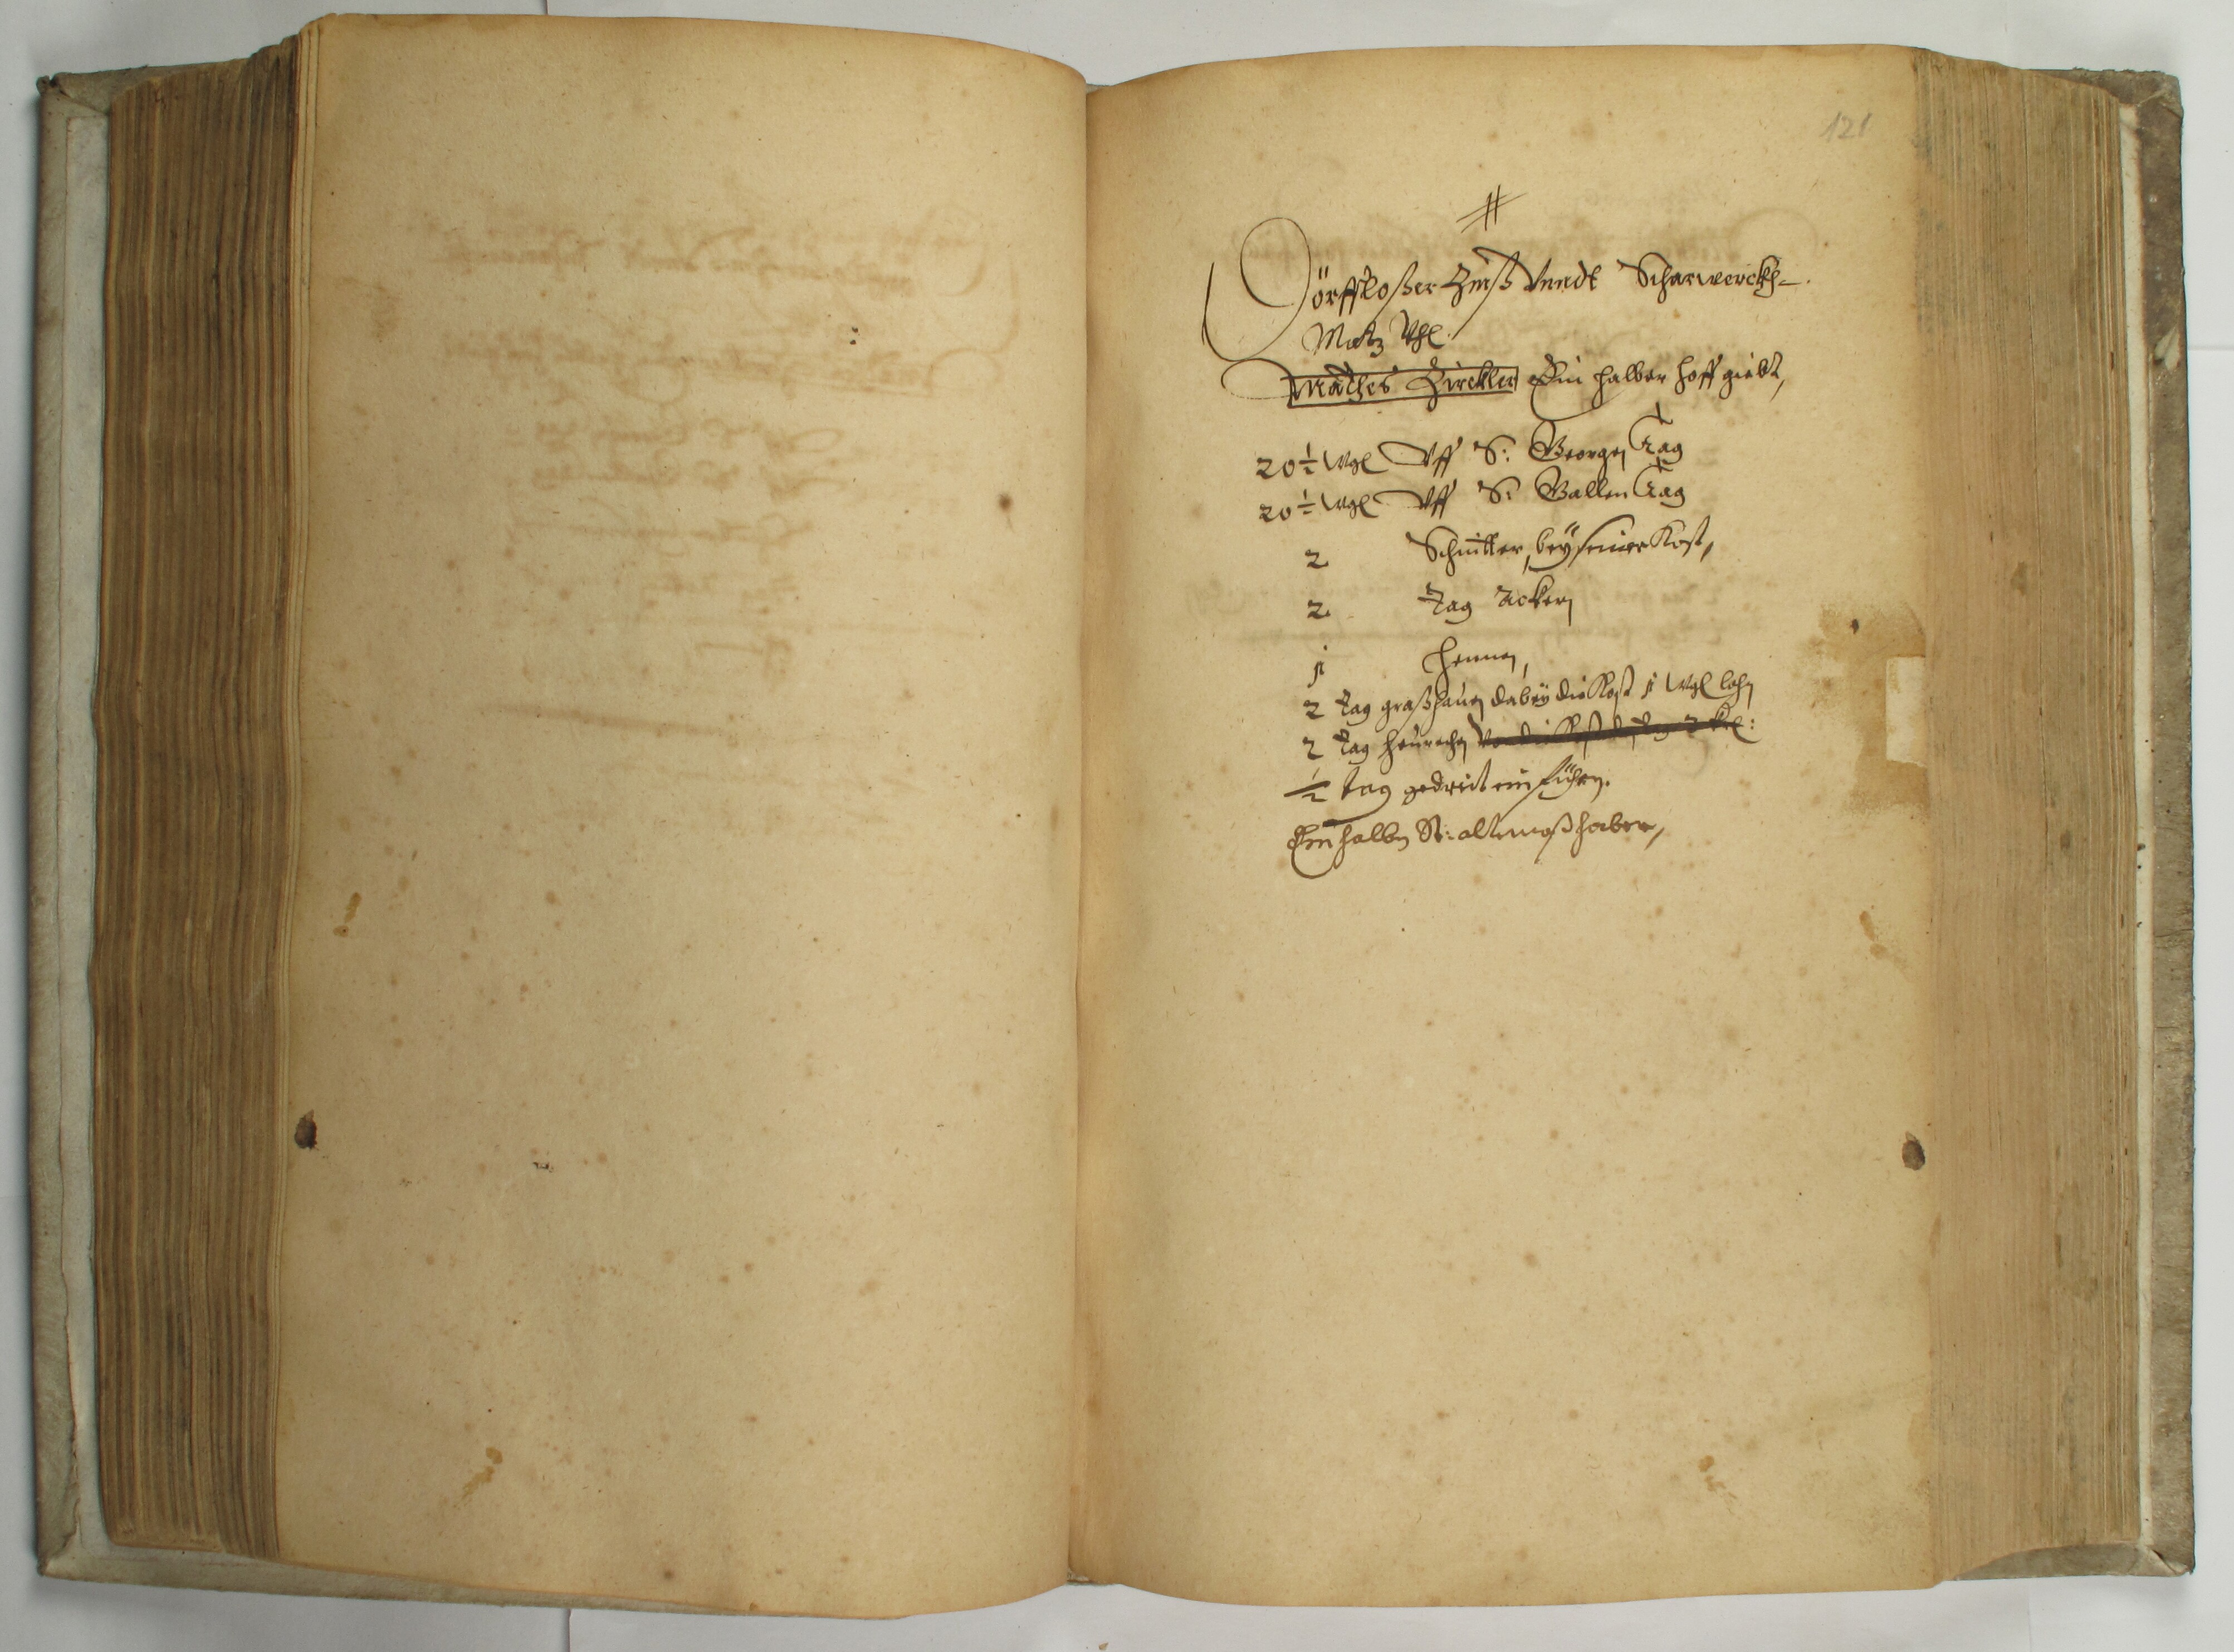 121
#
Dörffloßer Zinß Vnndt Scharwerckh
Matz Vhl
Mathes Zirckler Ein halber Hoff giebt,
20 ½ Wgl Vff S: Georgen Tag
20 ½ Wgl Vff S: Gallen Tag
2 Schnitter, bey seiner Kost,
2 Tag Ackern
1 Hennen,
2 Tag graßhauen dabey die Kost 1 Wgl lohn
2 Tag heurechen
½ tag gedreit einführen.
Ein halben St: altemaß haber,